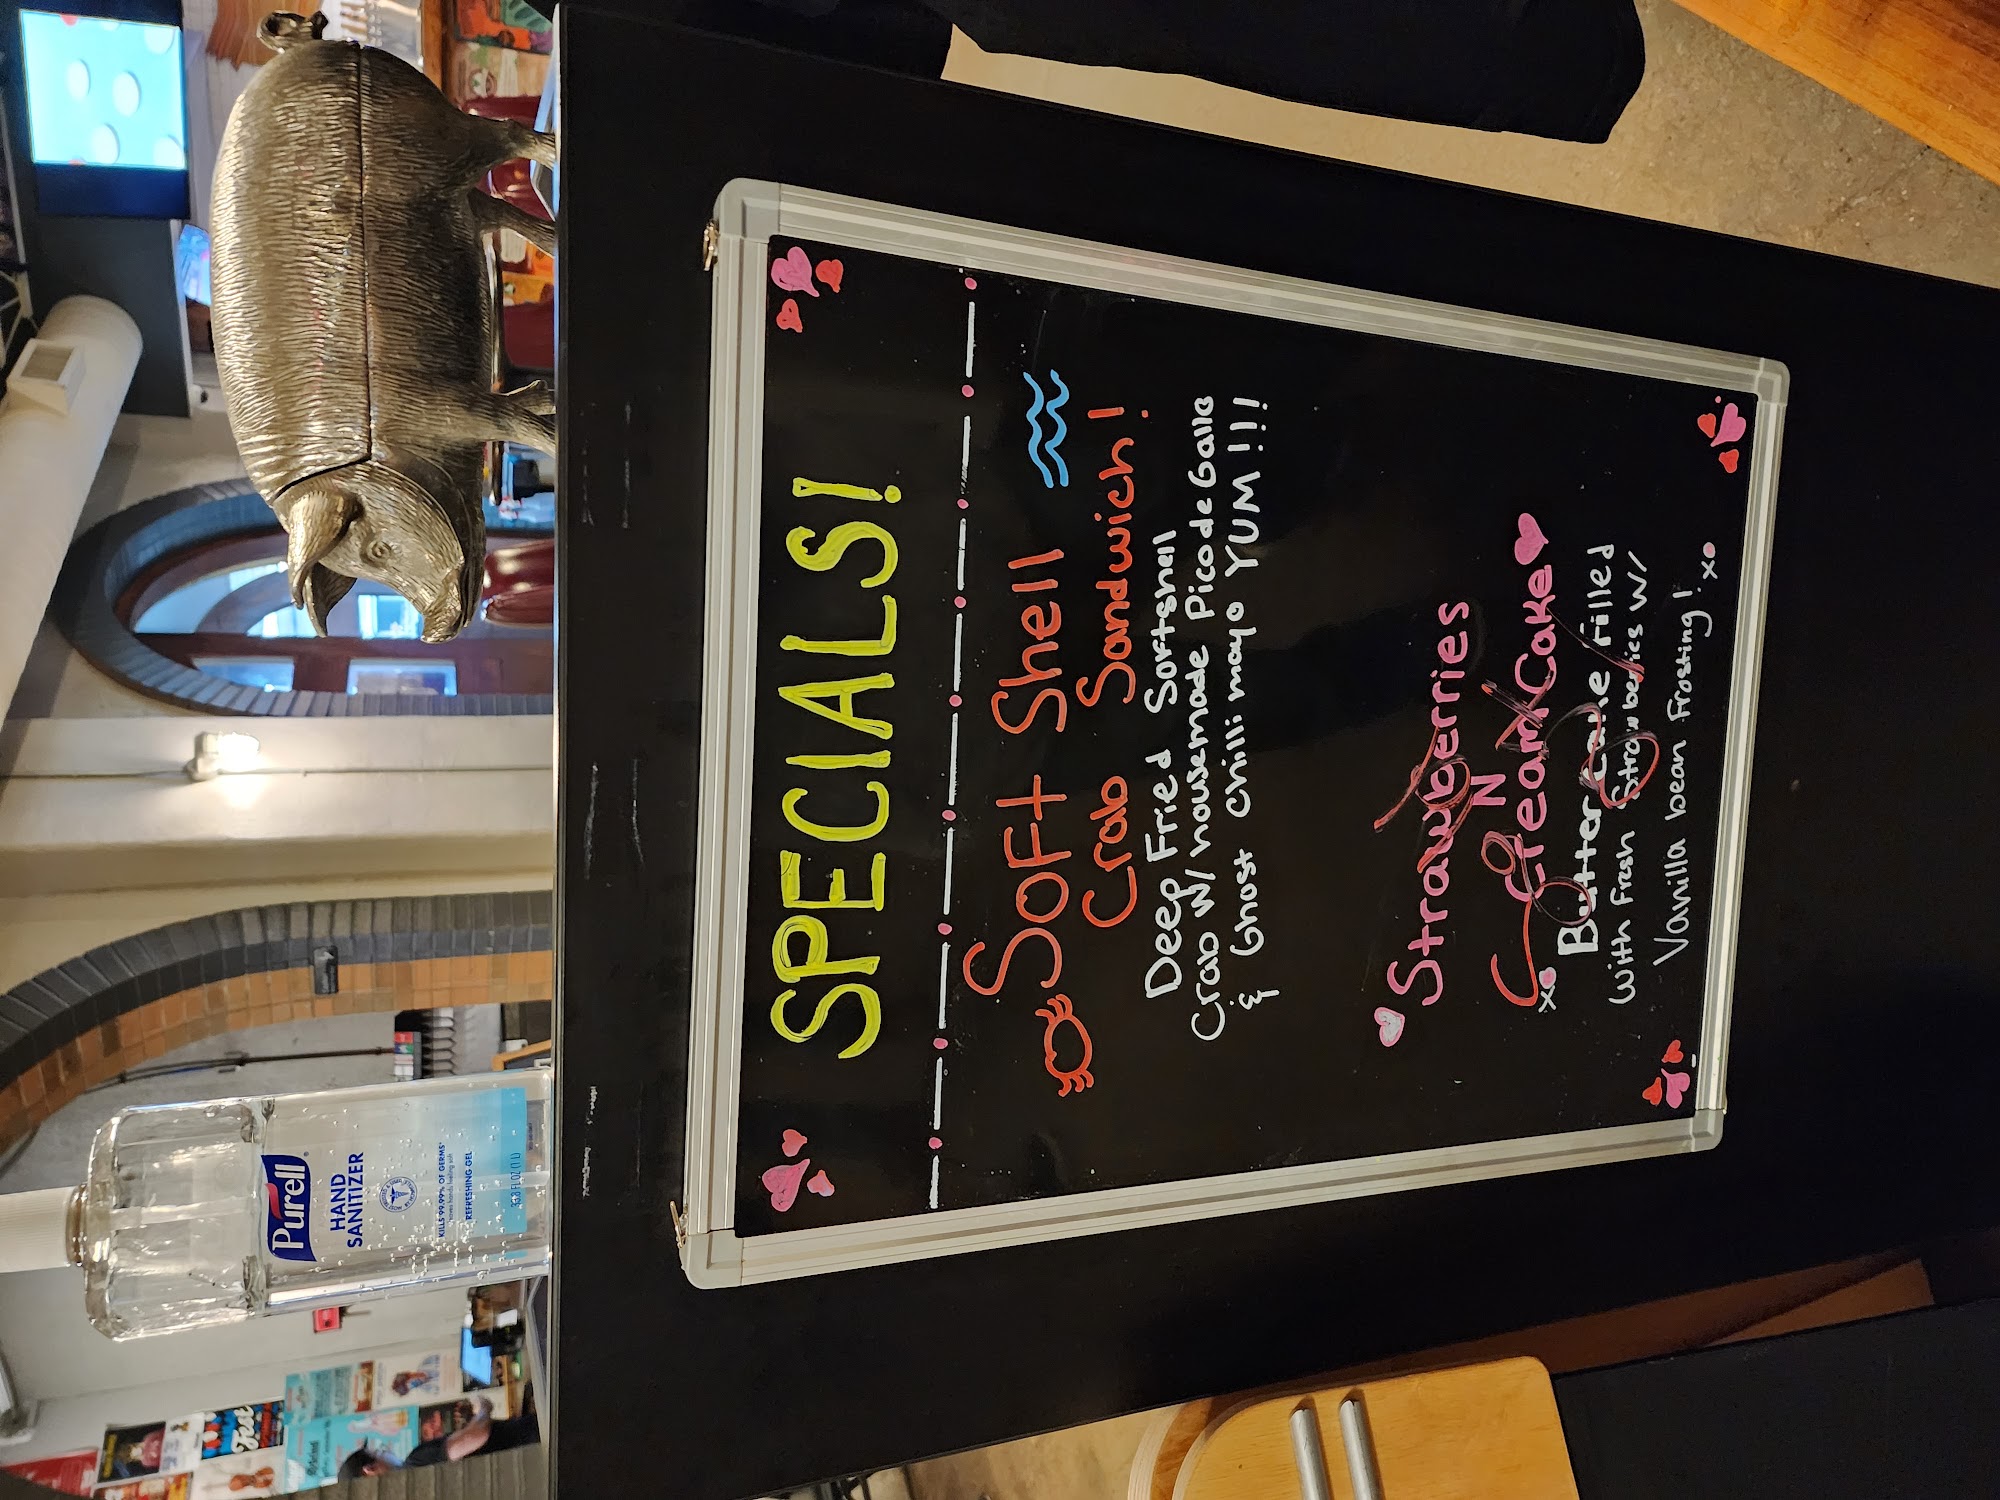 SPECIALS!
Soft Shell
Crab Sandwich!
Deep Fried Softshell
Crab w/ housemade Pico de Gallo
& Ghost chilli mayo YUM!!!
Strawberries
N
Cream Cake
xo
Butter Cake Filled
with Fresh Strawberries w/
Vanilla bean frosting! xo
Purell
HAND
SANITIZER
KILLS 99.99% OF GERMS
REFRESHING GEL
33.8 FL OZ (1 L)
Fest